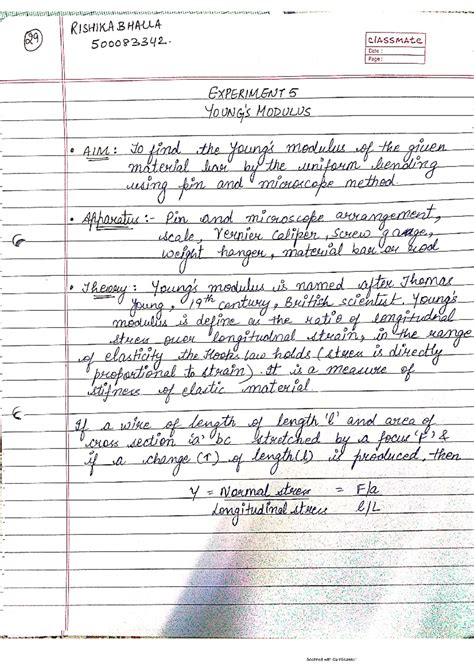 29
RISHIKA BHALLA
500083342.
classmate
Date :
Page :
EXPERIMENT 5
YOUNG'S MODULUS
• AIM : To find the Young's modulus of the given
material bar by the uniform bending
using pin and microscope method.
• Apparatus :- Pin and microscope arrangement,
scale, Vernier Caliper, screw gauge,
weight hanger, material bar or rod
• Theory : Young's modulus is named after Thomas
Young, 19th century, British scientist. Young's
modulus is define as the ratio of longitudnal
stress over longitudnal strain, in the range
of elasticity the Hooks law holds (stress is directly
proportional to strain). It is a measure of
stifness of elastic material.
If a wire of length of length 'l' and area of
cross section 'a' be stretched by a focus 'F' &
if a change (↑) of length (l) is produced, then
Y = Normal stress = F/a
Longitudinal stress l/L
Scanned with CamScanner